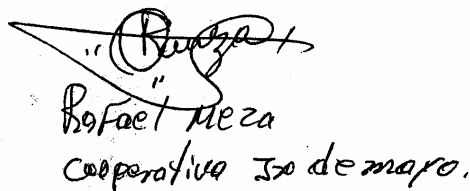 Rafael Meza
cooperativa 1ro de mayo.